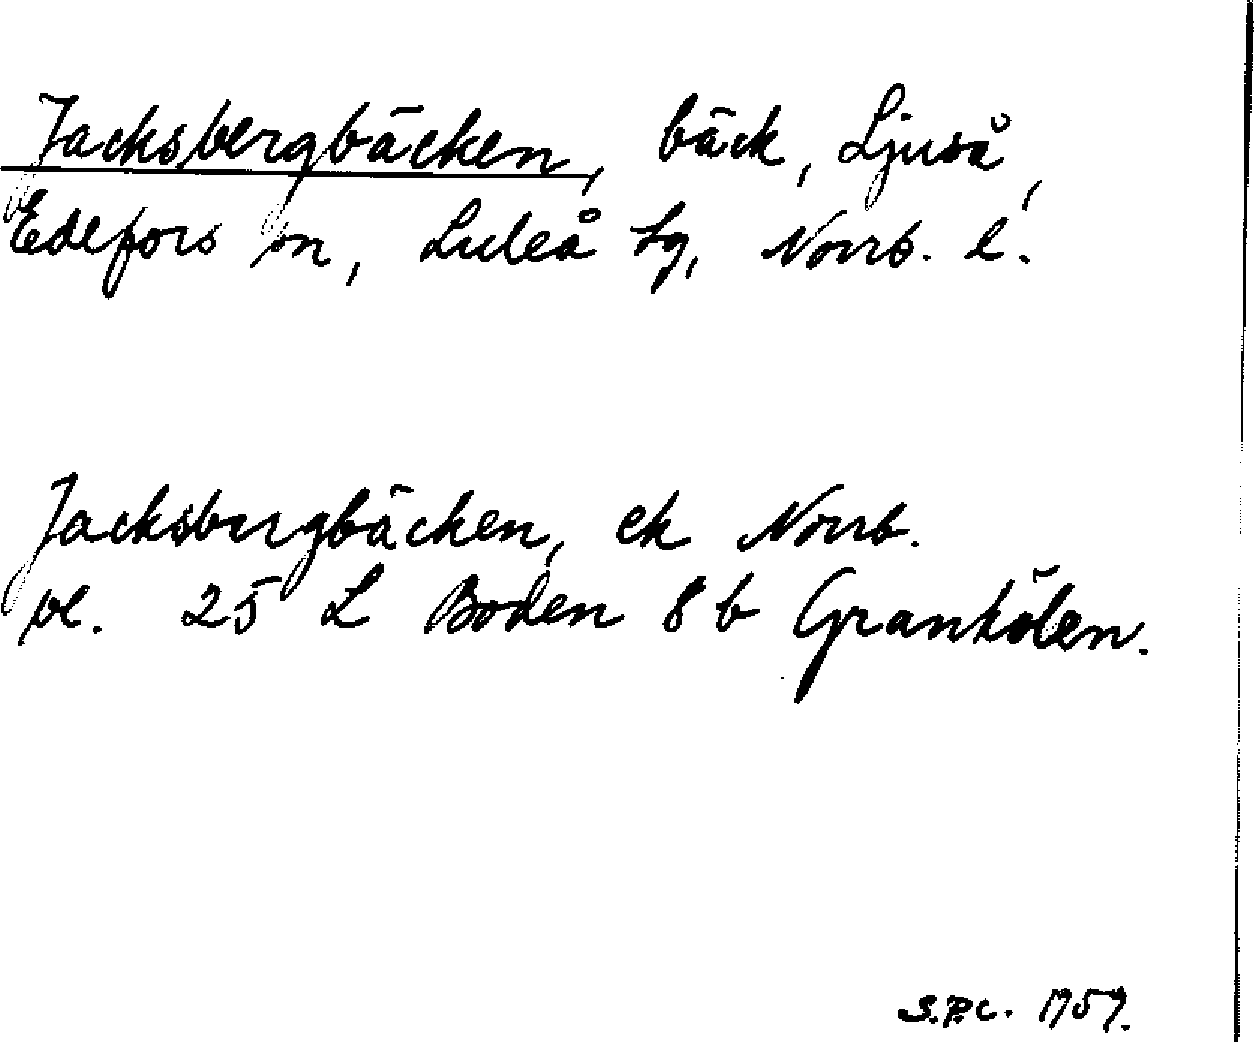 Jacksbergbäcken, bäck, Ljuså,
Edefors sn, Luleå tg, Norrb. l.
Jacksbergbäcken, ek Norrb.
bl. 25 L Boden 8 b Grankölen.
S.P.C. 1959.